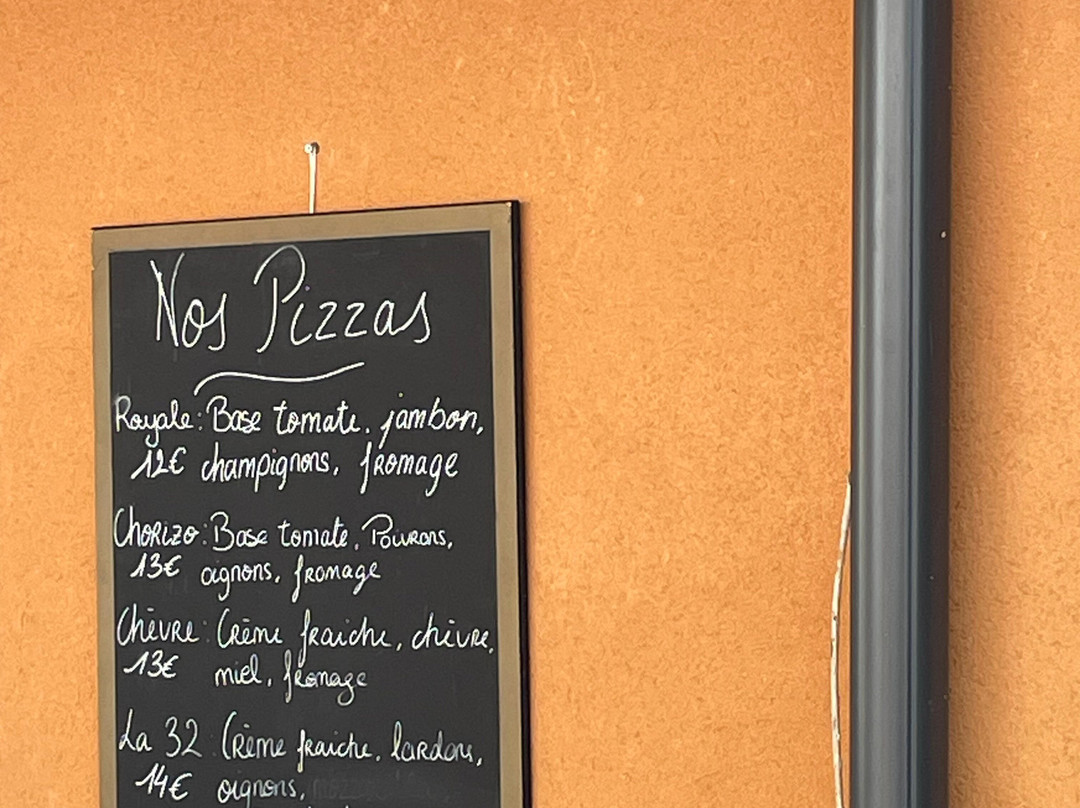 Nos Pizzas
Royale: Base tomate, jambon,
12€ champignons, fromage
Chorizo: Base tomate, Poivrons,
13€ oignons, fromage
Chèvre: Crème fraiche, chèvre,
13€ miel, fromage
La 32: Crème fraiche, lardons,
14€ oignons,